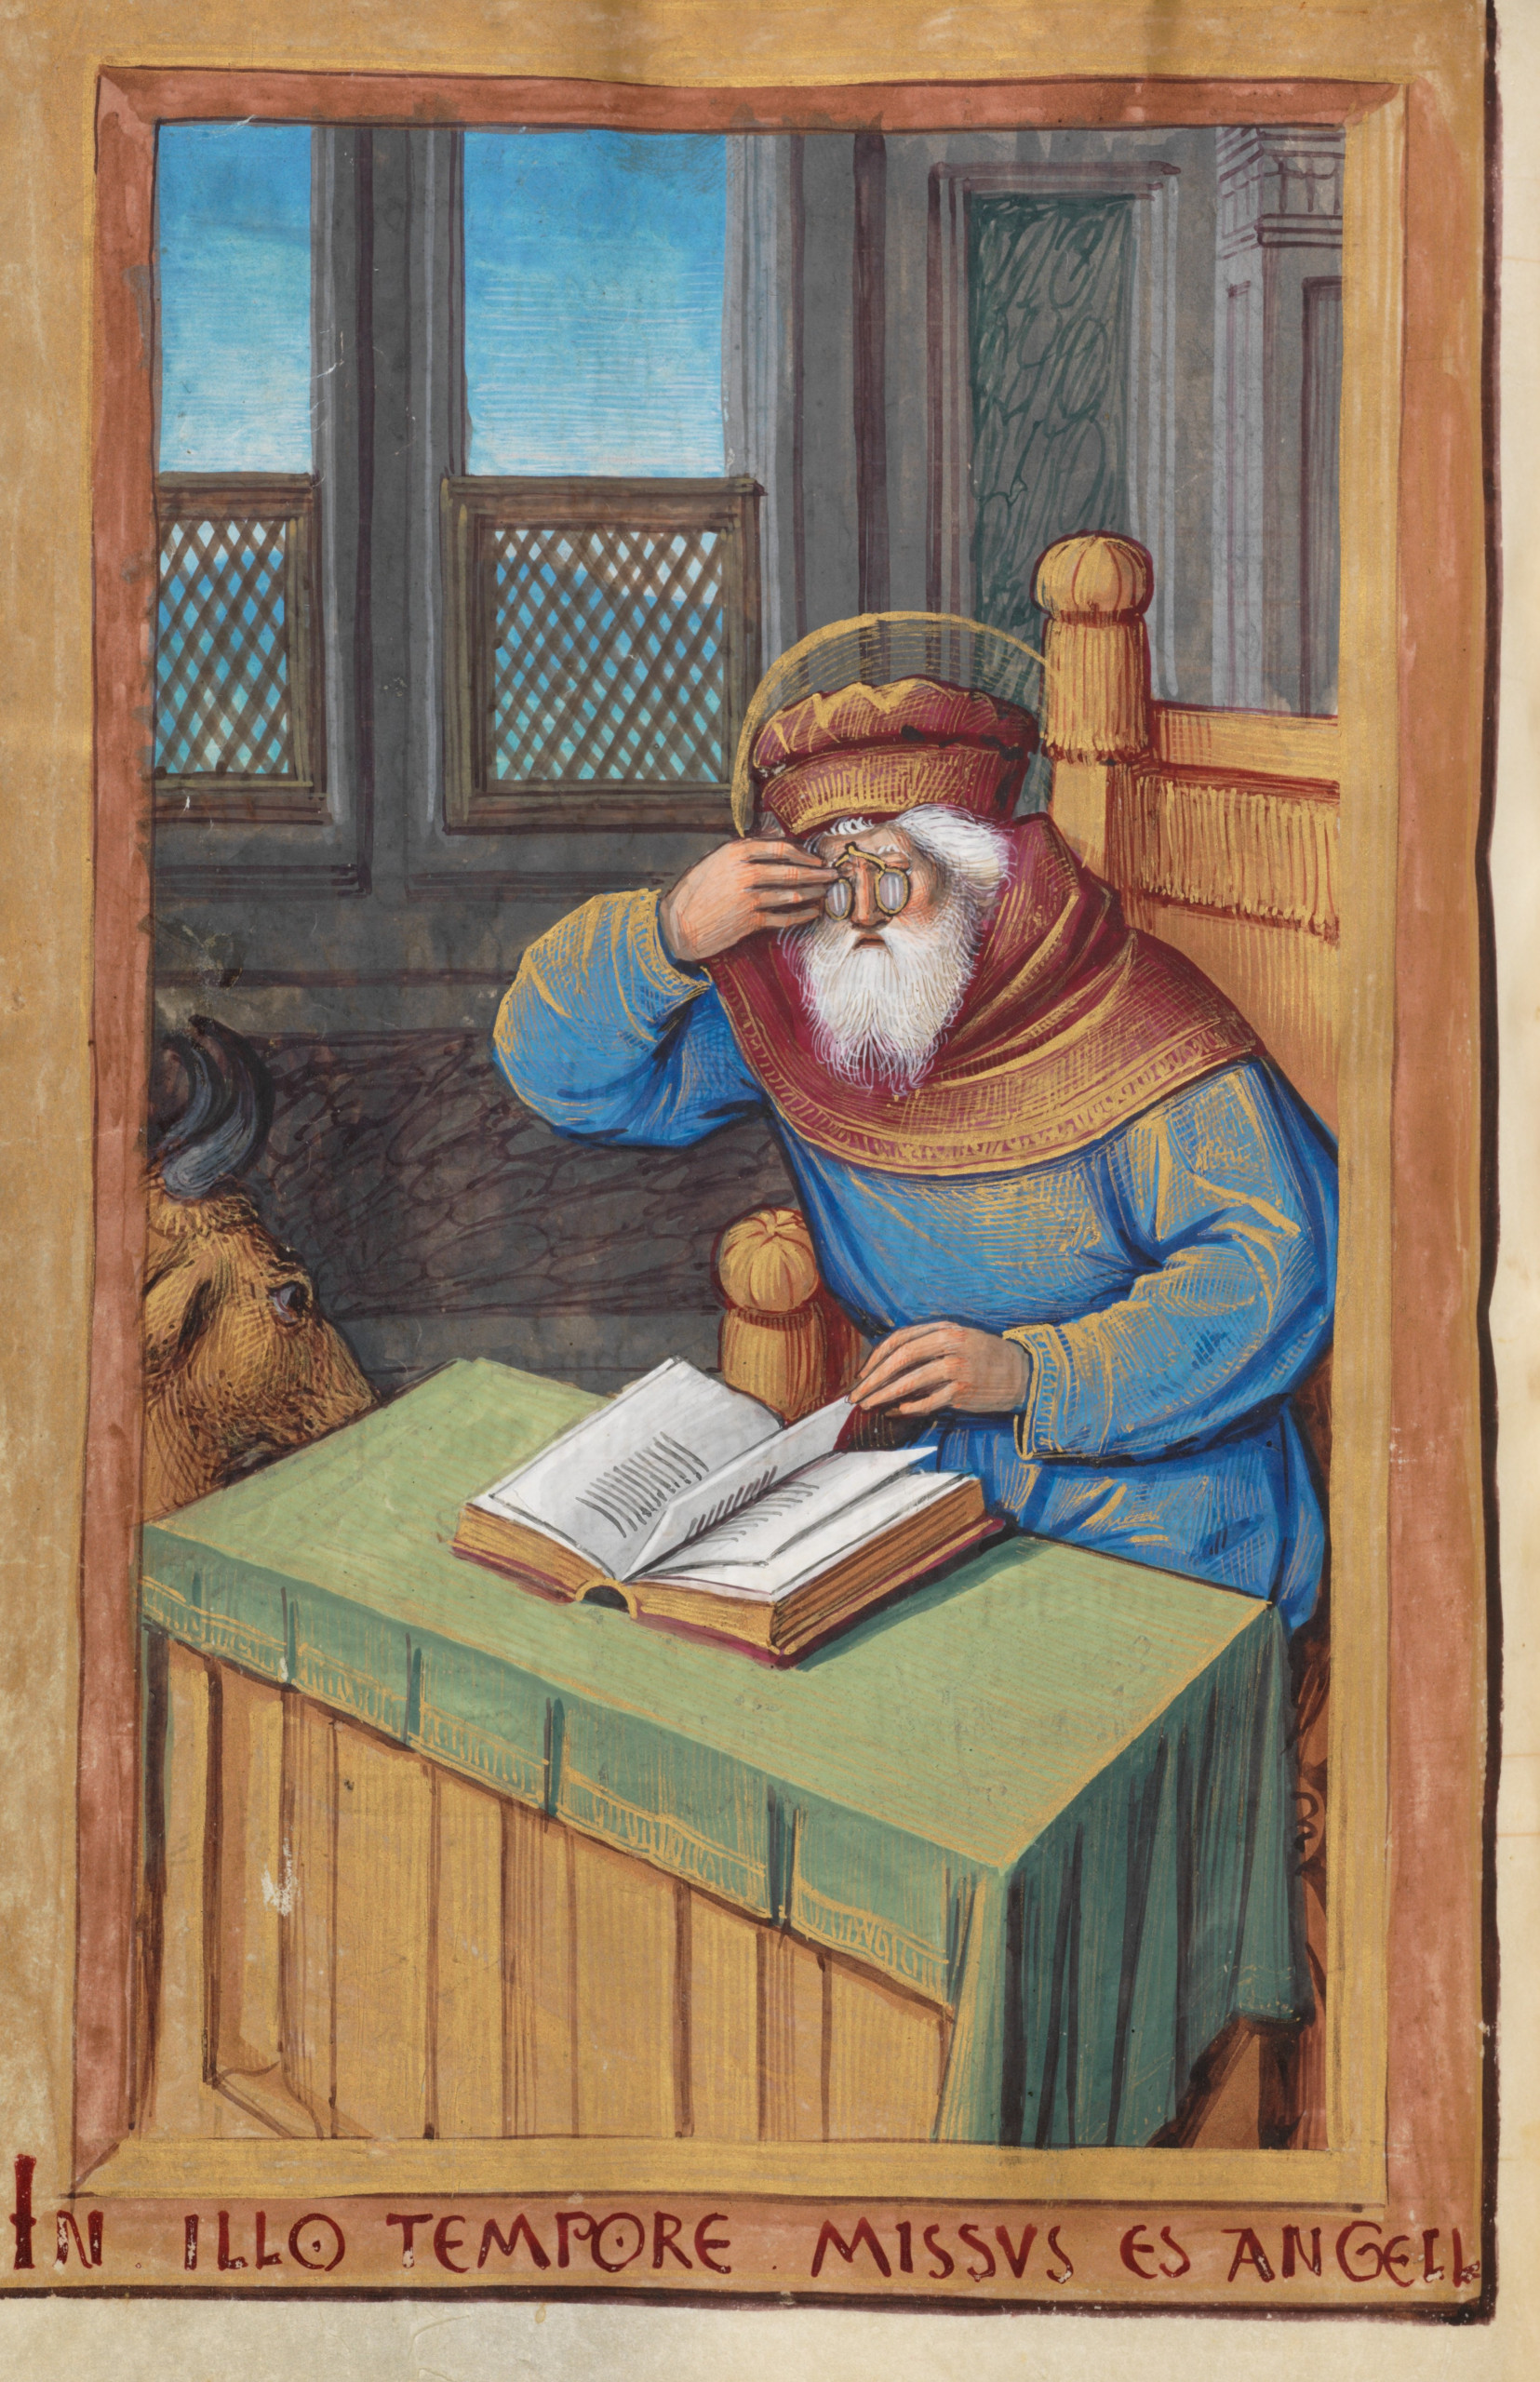 IN . ILLO TEMPORE . MISSVS ES ANGELL